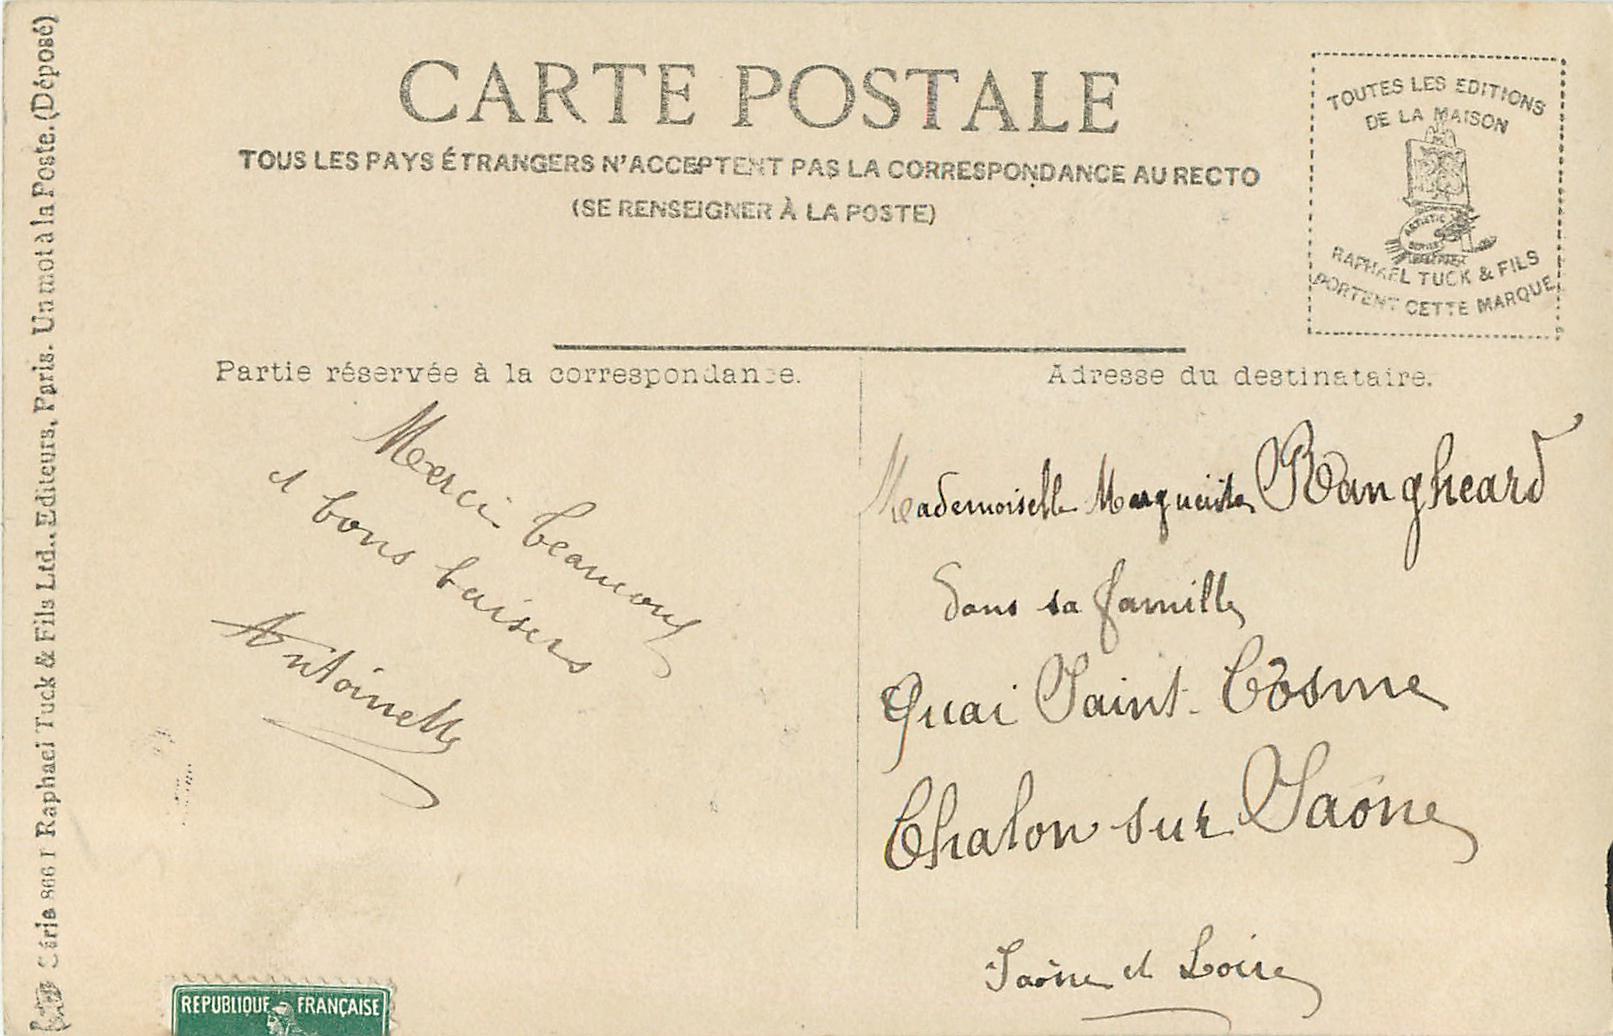 CARTE POSTALE
TOUS LES PAYS ÉTRANGERS N'ACCEPTENT PAS LA CORRESPONDANCE AU RECTO
(SE RENSEIGNER À LA POSTE)
TOUTES LES EDITIONS
DE LA MAISON
RAPHAEL TUCK & FILS
PORTENT CETTE MARQUE
Partie réservée à la correspondance.
Merci beaucoup
et bons baisers
Antoinette
Adresse du destinataire.
Mademoiselle Marguerite Rangheard
dans sa famille
Quai Saint-Cosme
Chalon sur Saône
Saône et Loire
Série 866 I Raphael Tuck & Fils Ltd., Editeurs, Paris. Un mot à la Poste. (Déposé)
REPUBLIQUE FRANÇAISE